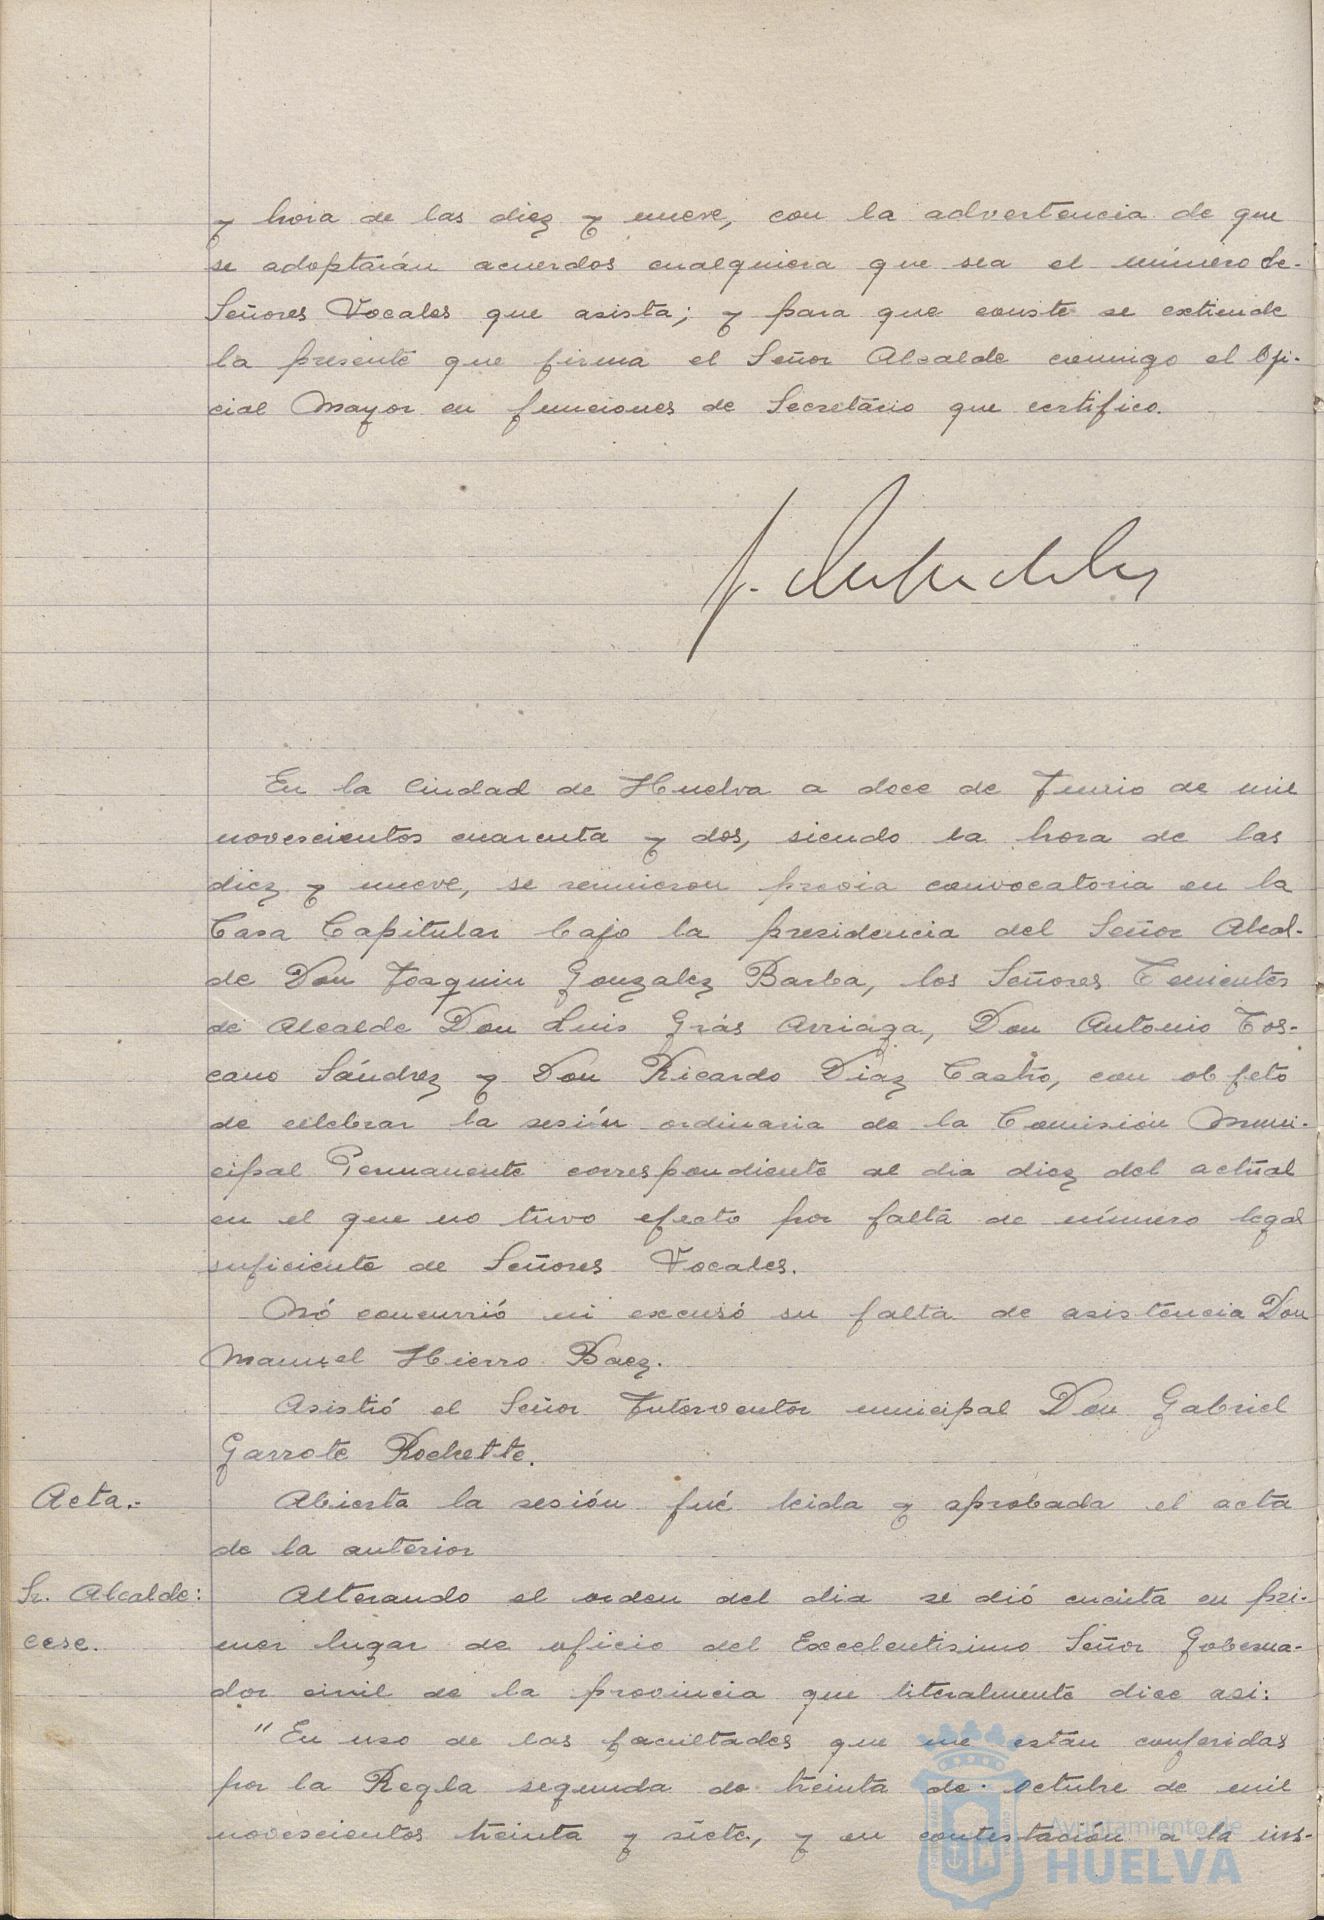 y hora de las diez y nueve, con la advertencia de que
se adoptarán acuerdos cualquiera que sea el número de-
Señores Vocales que asista; y para que conste se extiende
la presente que firma el Señor Alcalde conmigo el Ofi-
cial Mayor en funciones de Secretario que certifico.
En la Ciudad de Huelva a doce de Junio de mil
novescientos cuarenta y dos, siendo la hora de las
diez y nueve, se reunieron previa convocatoria en la
Casa Capitular bajo la presidencia del Señor Alcal-
de Don Joaquin Gonzalez Barba, los Señores Tenientes
de Alcalde Don Luis Grás Arriaga, Don Antonio Tos-
cano Sánchez y Don Ricardo Diaz Castro, con objeto
de celebrar la sesión ordinaria de la Comisión Muni-
cipal Permanente correspondiente al dia diez del actual
en el que no tuvo efecto por falta de número legal
suficiente de Señores Vocales.
Nó concurrió ni excusó su falta de asistencia Don
Manuel Hierro Baez.
Asistió el Señor Interventor municipal Don Gabriel
Garrote Rochette.
Acta.- Abierta la sesión fué leida y aprobada el acta
de la anterior
Sr. Alcalde: Alterando el orden del dia se dió cuenta en pri-
cese. mer lugar de oficio del Excelentisimo Señor Goberna-
dor civil de la provincia que literalmente dice asi:
"En uso de las facultades que me están conferidas
por la Regla segunda de treinta de octubre de mil
novescientos treinta y siete, y en contestación a la ins-
Ayuntamiento de
HUELVA